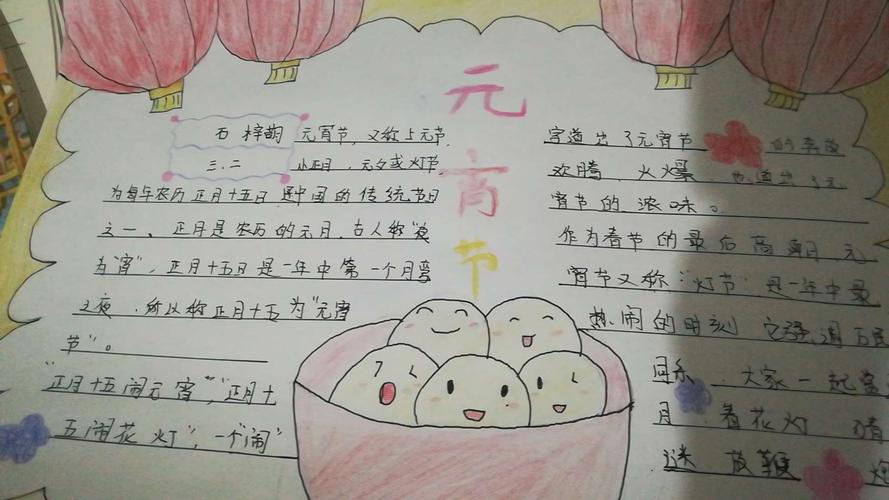 元宵节
石梓萌
三.二
元宵节，又称上元节，
小正月、元夕或灯节
为每年农历正月十五日，是中国的传统节日
之一、正月是农历的元月，古人称“夜
为“宵”，正月十五日是一年中第一个月圆
之夜，所以称正月十五为“元宵
节”。
“正月十五闹元宵”，“正月十
五闹花灯”，一个“闹”
字道出了元宵节
欢腾、火爆 也道出了元
宵节的浓味。
作为春节的最后高潮，元
宵节又称“灯节”是一年中最
热闹的时刻 它强调
同乐 大家一起赏
月 看花灯 猜
谜 放鞭